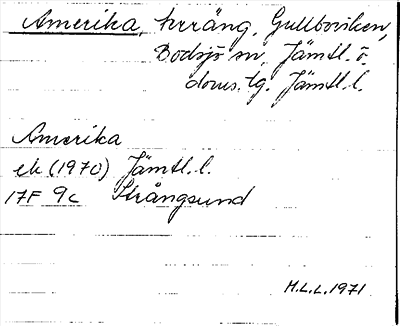 Amerika, terräng, Gullboviken,
Bodsjö sn, Jämtl. ö.
doms.tg. Jämtl.l.
Amerika
ek (1970) Jämtl.l.
17F 9c Strångsund
M.L.L. 1971